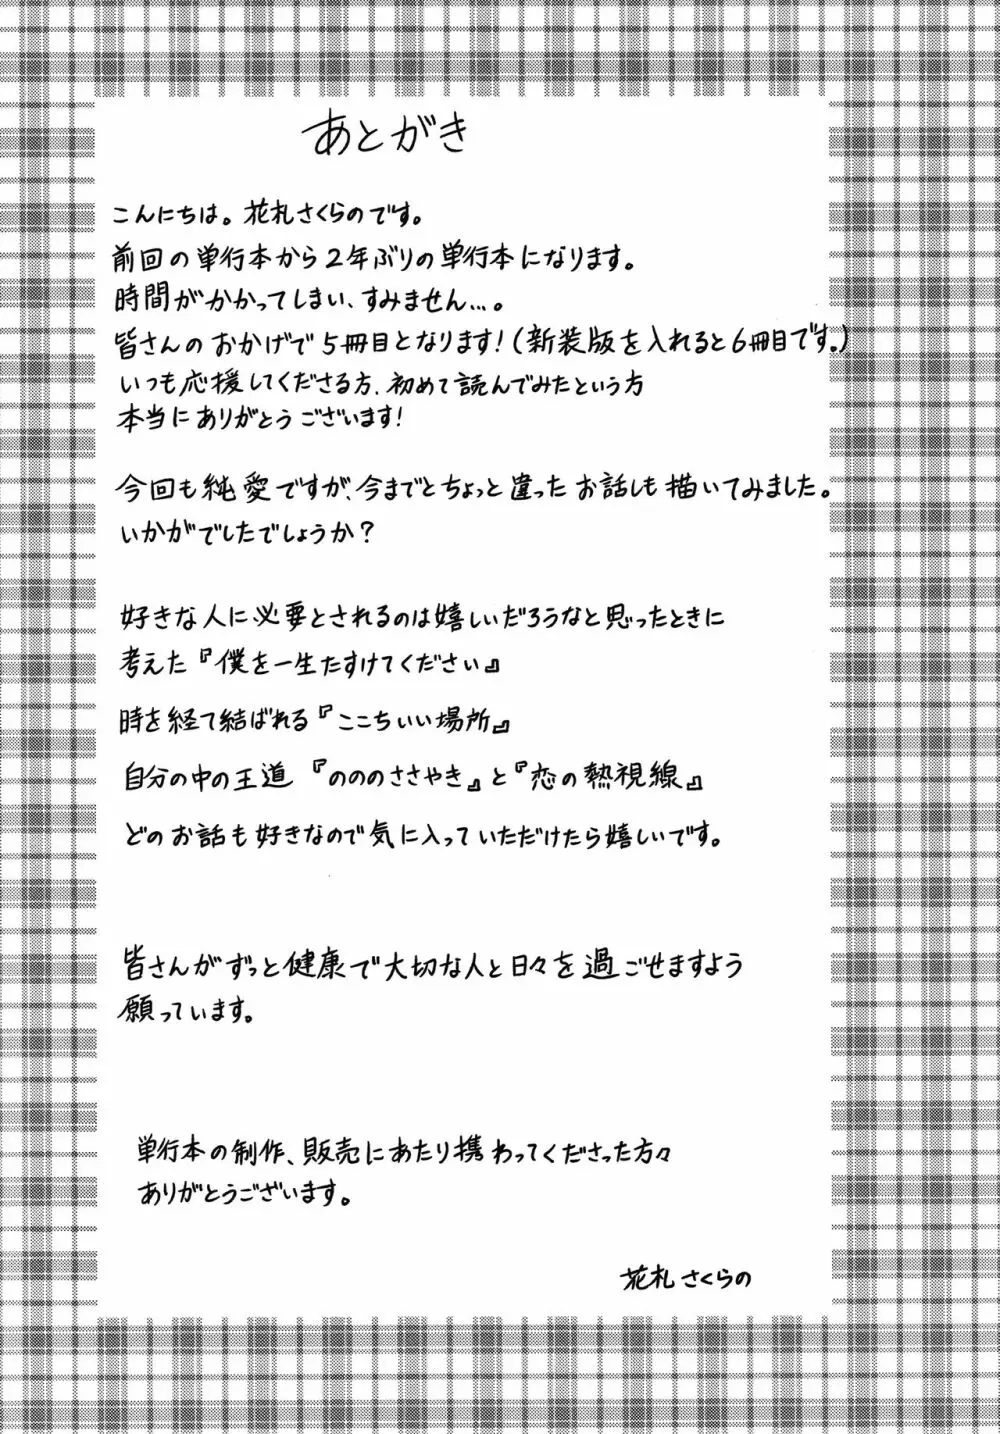 あとがき
こんにちは。花札さくらのです。
前回の単行本から2年ぶりの単行本になります。
時間がかかってしまい、すみません…。
皆さんのおかげで5冊目となります!(新装版を入れると6冊目です。)
いつも応援してくださる方、初めて読んでみたという方
本当にありがとうございます!
今回も純愛ですが、今までとちょっと違ったお話しも描いてみました。
いかがでしたでしょうか?
好きな人に必要とされるのは嬉しいだろうなと思ったときに
考えた『僕を一生たすけてください』
時を経て結ばれる『ここちいい場所』
自分の中の王道『のののささやき』と『恋の熱視線』
どのお話も好きなので気に入っていただけたら嬉しいです。
皆さんがずっと健康で大切な人と日々を過ごせますよう
願っています。
単行本の制作、販売にあたり携わってくださった方々
ありがとうございます。
花札さくらの